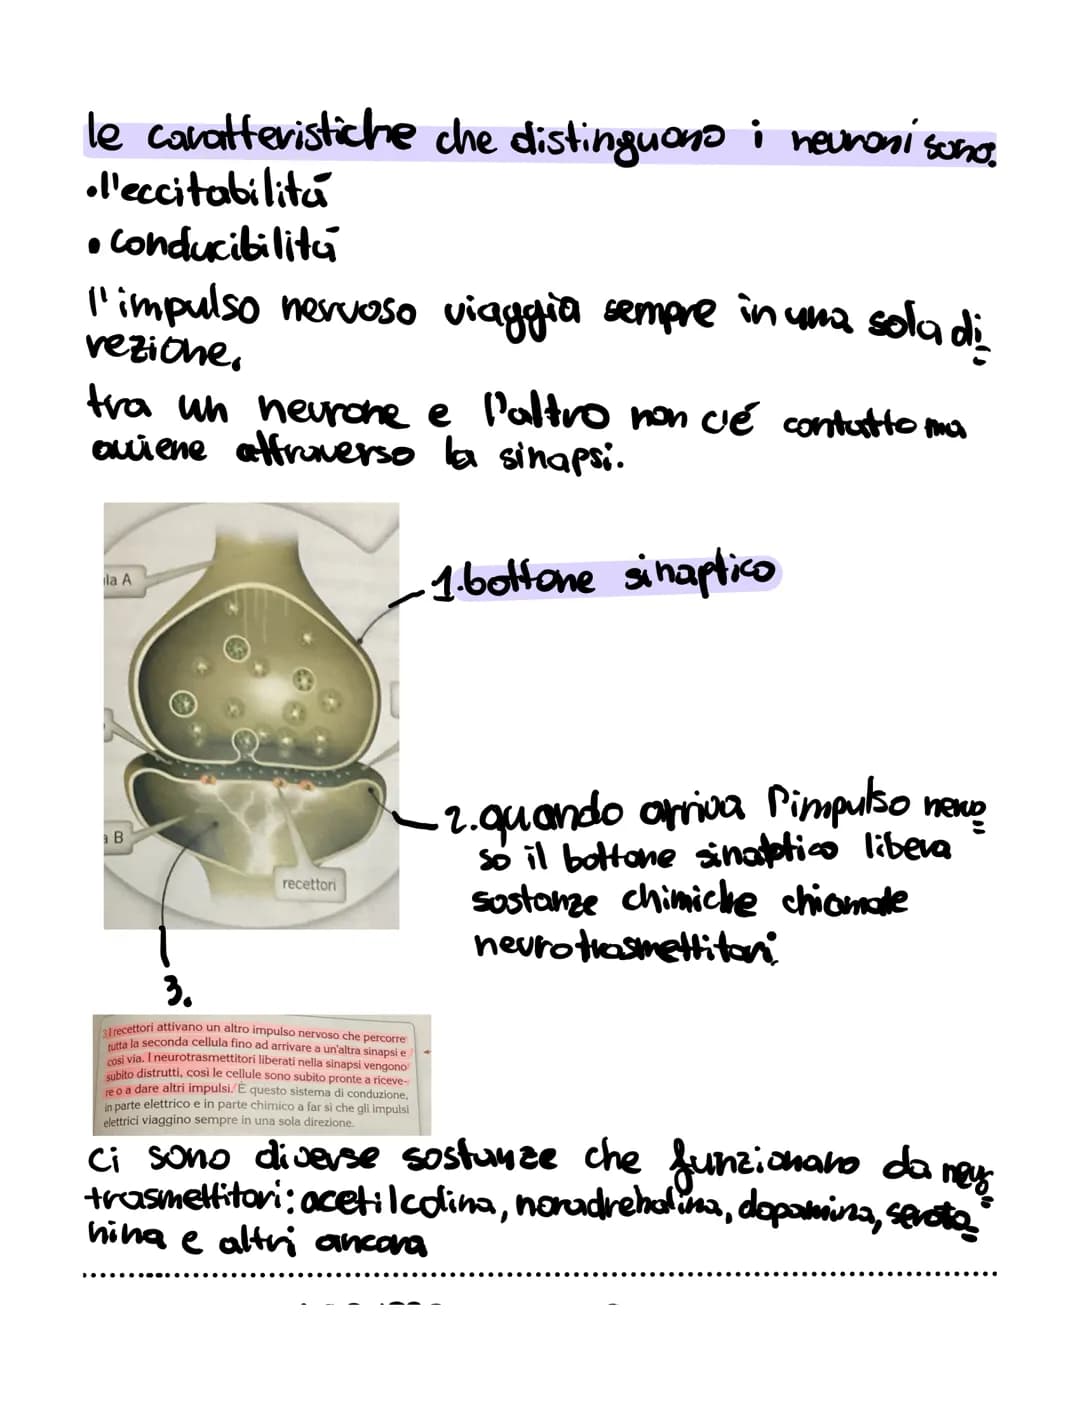 le caratteristiche che distinguono i neuroni sono:
•l'eccitabilitá
• conducibilitá
l'impulso nervoso viaggia sempre in una sola di
rezione.
tra un neurone e l'altro non c'é contatto ma
avviene attraverso la sinapsi.
ula A
1.bottone sinaptico
2.quando arriva l'impulso nervo
so il bottone sinaptico libera
sostanze chimiche chiamate
neurotrasmettitori.
a B
recettori
3.
3.I recettori attivano un altro impulso nervoso che percorre
tutta la seconda cellula fino ad arrivare a un'altra sinapsi e
così via. I neurotrasmettitori liberati nella sinapsi vengono
subito distrutti, così le cellule sono subito pronte a riceve-
re o a dare altri impulsi. È questo sistema di conduzione,
in parte elettrico e in parte chimico a far sì che gli impulsi
elettrici viaggino sempre in una sola direzione.
ci sono diverse sostanze che funzionano da neu
trasmettitori: acetilcolina, noradrenalina, dopamina, seroto
nina e altri ancora